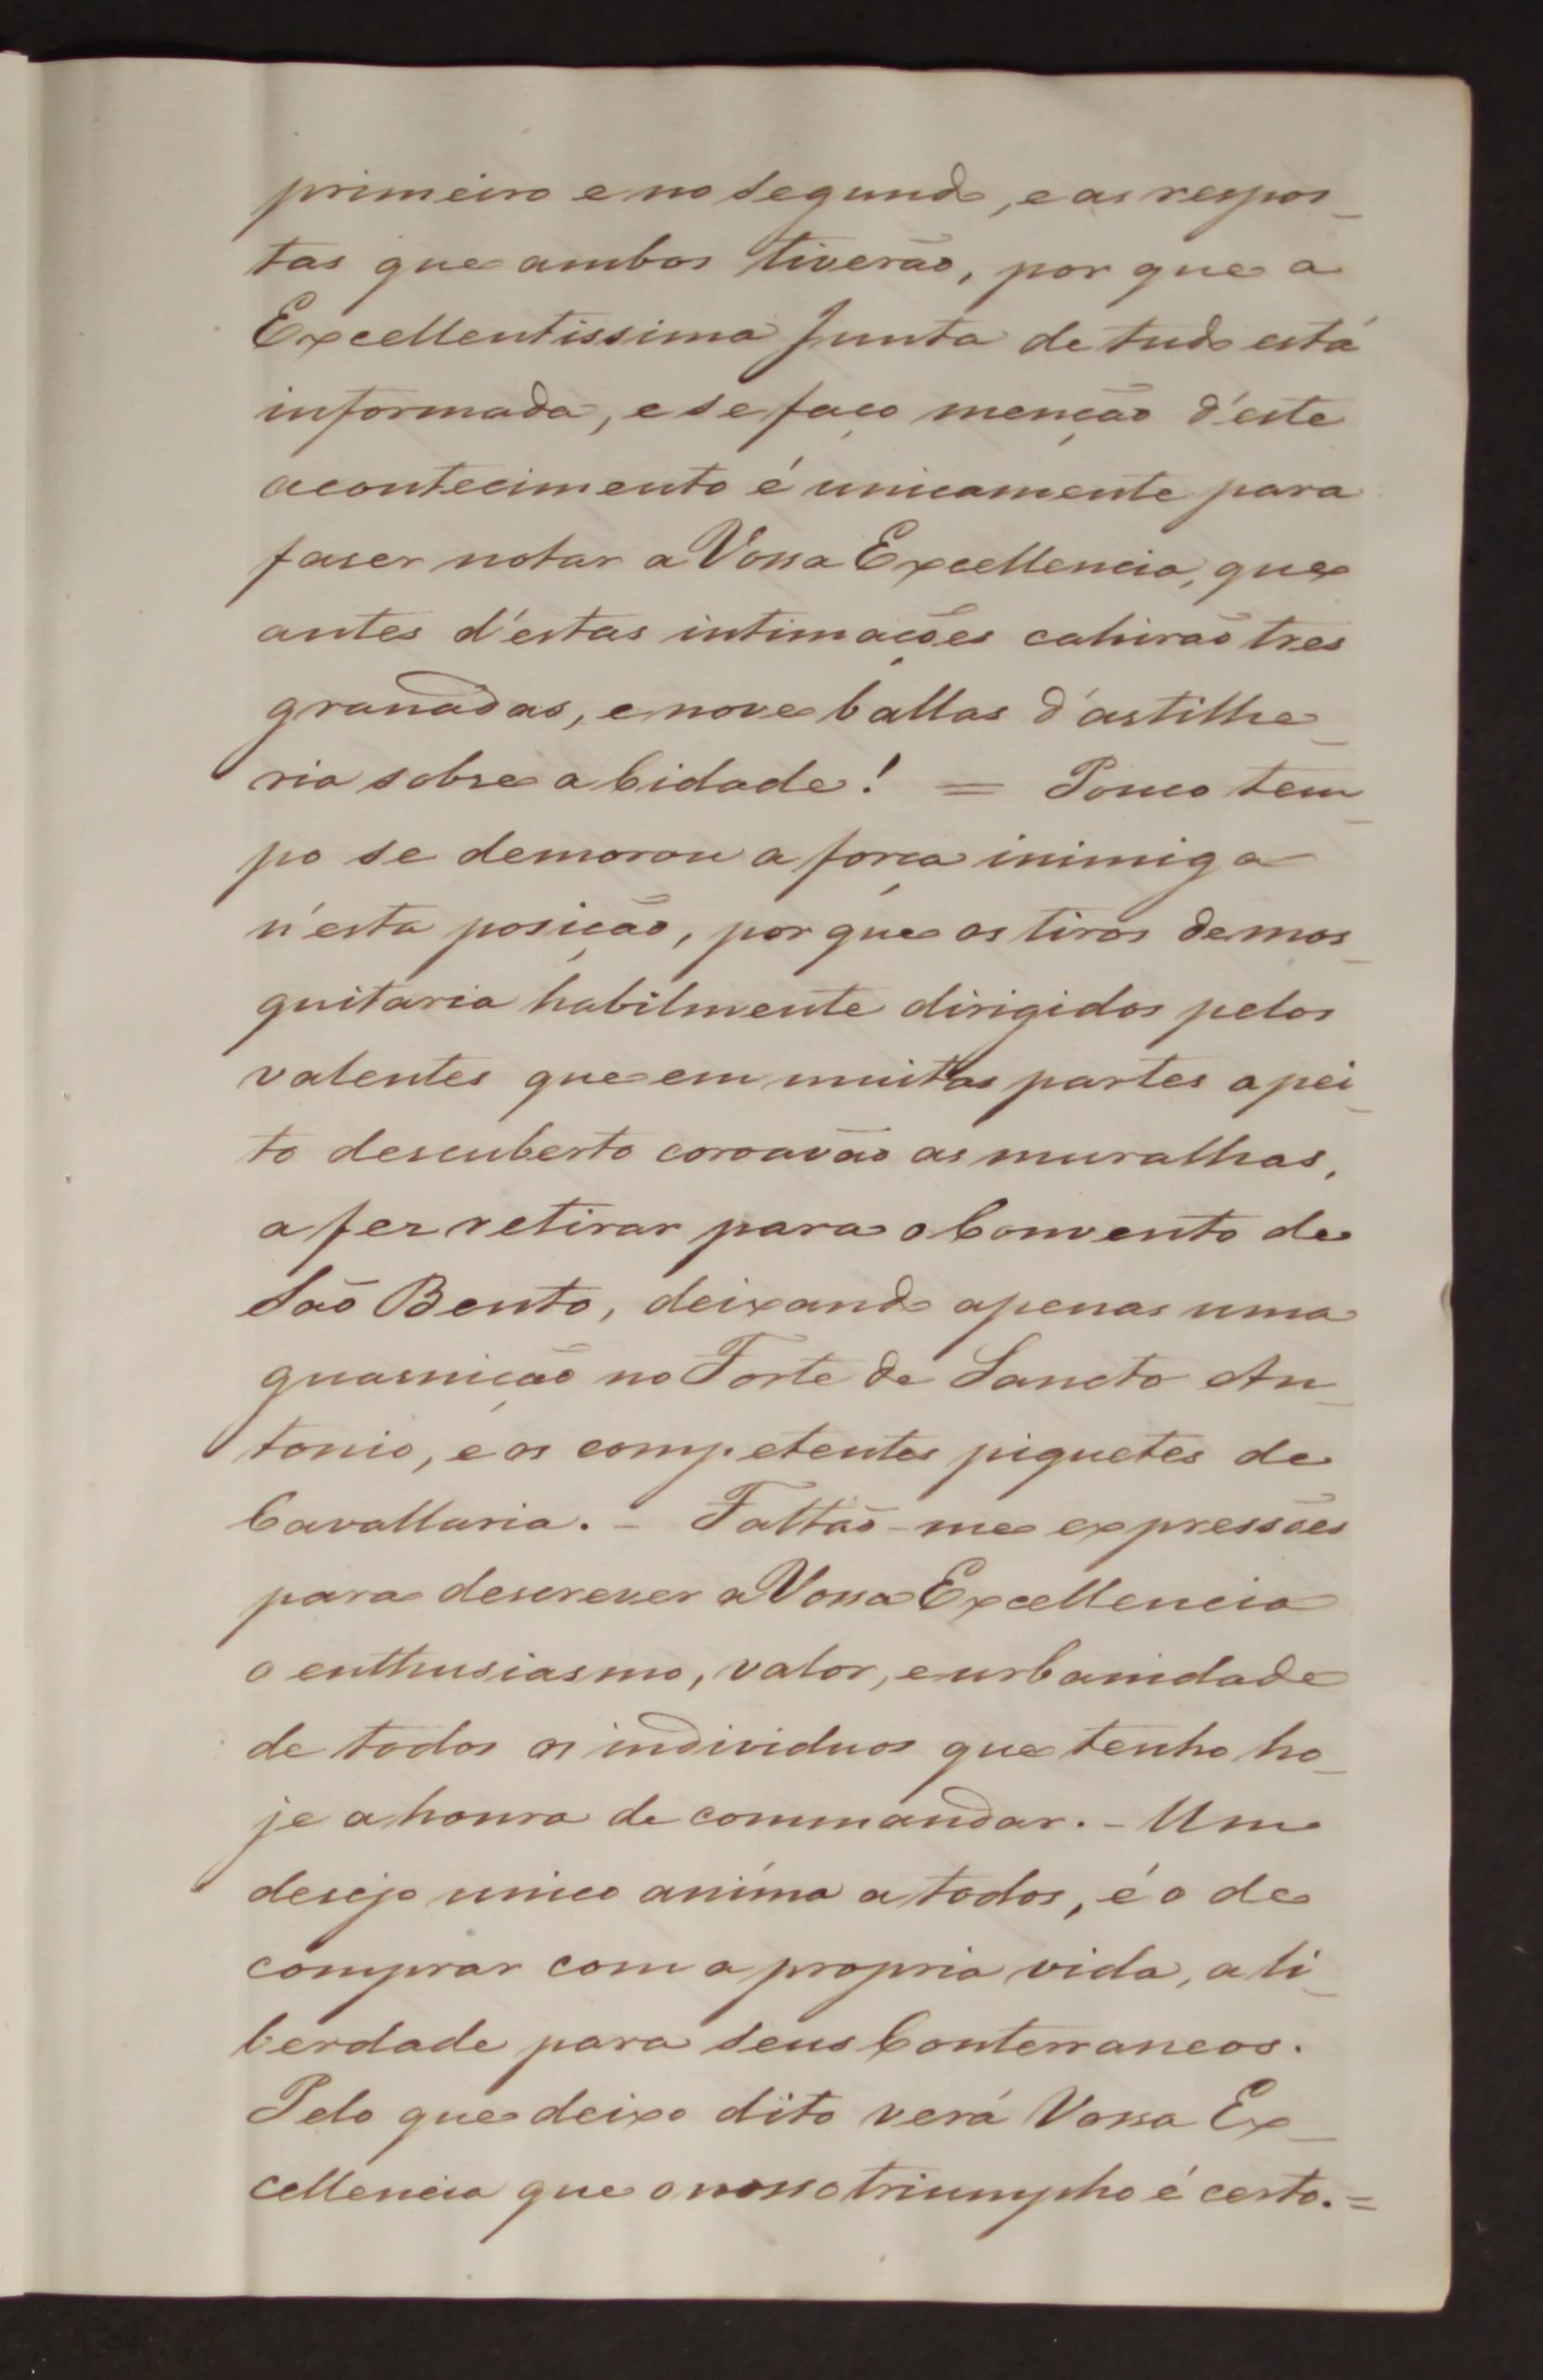 primeiro e no segundo, e as respos_
tas que ambos tiverão, por que a
Excellentissima Junta de tudo está
informada, e se faço menção d'este
acontecimento é unicamente para
faser notar a Vossa Excellencia, que
antes d'estas intimações cahirão tres
granadas, e nove ballas d'artilhe_
ria sobre a Cidade! = Pouco tem_
po se demorou a força inimiga
n'esta posição, por que os tiros de mos_
quitaria habilmente dirigidos pelos
valentes que em muitas partes a pei_
to descuberto coroavão as muralhas,
a fez retirar para o Convento de
São Bento, deixando apenas uma
guarnição no Forte de Sancto An_
tonio, e os competentes piquetes de
Cavallaria. - Faltão-me expressões
para descrever a Vossa Excellencia
o enthusiasmo, valor, e urbanidade
de todos os individuos que tenho ho_
je a honra de commandar. - Um
desejo unico anima a todos, é o de
comprar com a propria vida, a li_
berdade para seus Conterraneos.
Pelo que deixo dito verá Vossa Ex_
cellencia que o nosso triumpho é certo. =